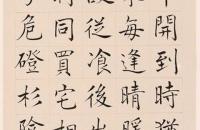 開到時猶
每逢晴暖
從飡後出
同買宅相
危磴杉陰